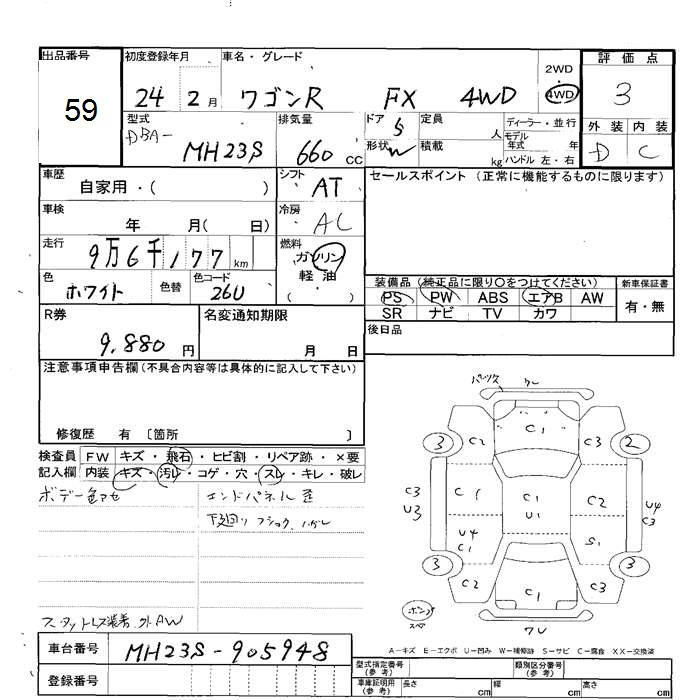 出品番号 初度登録年月 車名・グレード 2WD 評価点
59 24 2月 ワゴンR FX 4WD 4WD 3
型式 排気量 ドア 5 定員 人 ディーラー・並行 外装 内装
DBA- MH23S 660 CC 形状 W 積載 kg モデル年式 年 D C
ハンドル 左・右
車歴 シフト AT セールスポイント (正常に機能するものに限ります)
自家用・( )
車検 年 月( 日) 冷房 AC
走行 9万6千177 km 燃料 ガソリン
軽油
( )
色 ホワイト 色替 色コード 26U
装備品 (純正品に限り○をつけてください) 新車保証書
PS PW ABS エアB AW 有・無
SR ナビ TV カワ
R券 9,880 円 名変通知期限 月 日
後日品
注意事項申告欄(不具合内容等は具体的に記入して下さい)
修復歴 有 〔箇所 〕
検査員 FW キズ・飛石・ヒビ割・リペア跡・×要
記入欄 内装 キズ・汚レ・コゲ・穴・スレ・キレ・破レ
ボデー色アセ エンドパネル歪
下廻り
スタットレス装着 外AW
車台番号 MH23S-905948
登録番号
ワレ
C2 C1 C3
3 2
C3 U3 C1 C1 U1 C2 U4 C3
U4 C1 S1
3 3
C2 C1 C3
スペア
ワレ
A－キズ E－エクボ U－凹み W－補修跡 S－サビ C－腐食 XX－交換済
型式指定番号(参考) 類別区分番号(参考)
車庫証明用(参考) 長さ cm 幅 cm 高さ cm